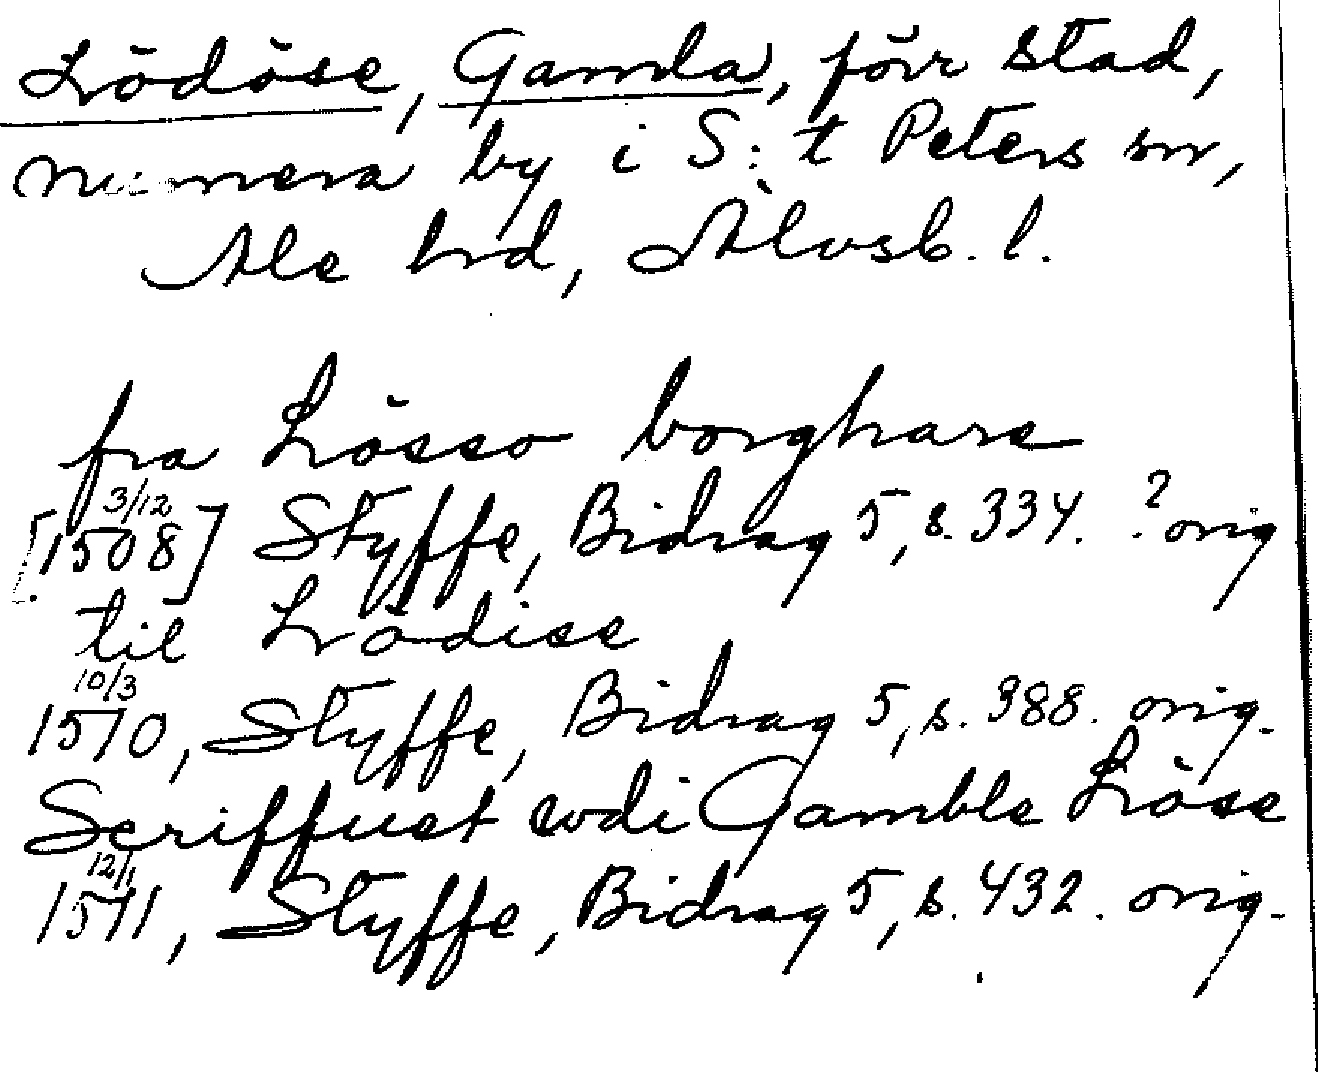 Lödöse, Gamla, förr stad,
numera by i S:t Peters sn,
Ale hd, Älvsb. l.
fra Lösso borghare
[1508 3/12] Styffe, Bidrag 5, s. 334. ? orig
til Lødise
1510 10/3, Styffe, Bidrag 5, s. 388. orig.
Scriffuet wdi Gamble Löse
1511 12/1, Styffe, Bidrag 5, s. 432. orig.